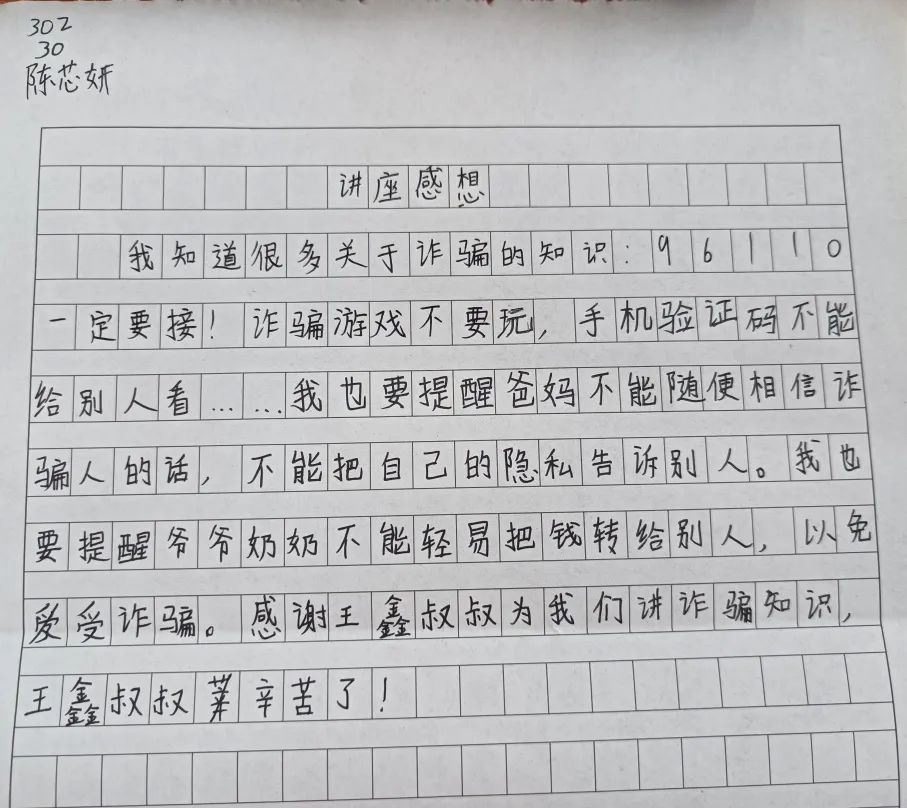 302
30
陈芯妍
讲座感想
我知道很多关于诈骗的知识：96110
一定要接！诈骗游戏不要玩，手机验证码不能
给别人看……我也要提醒爸妈不能随便相信诈
骗人的话，不能把自己的隐私告诉别人。我也
要提醒爷爷奶奶不能轻易把钱转给别人，以免
受诈骗。感谢王鑫叔叔为我们讲诈骗知识，
王鑫叔叔辛苦了！